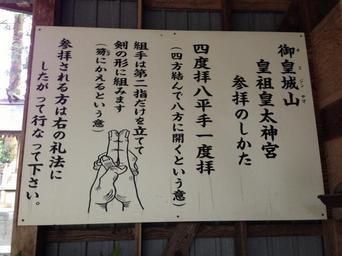 御皇城山
オミジンヤマ
皇祖皇太神宮
参拝のしかた
四度拝八平手一度拝
(四方結んで八方に開くという意)
組手は第二指だけを立てて
剣の形に組みます
(笏にかえるという意)
参拝される方は右の礼法に
したがって行なって下さい。